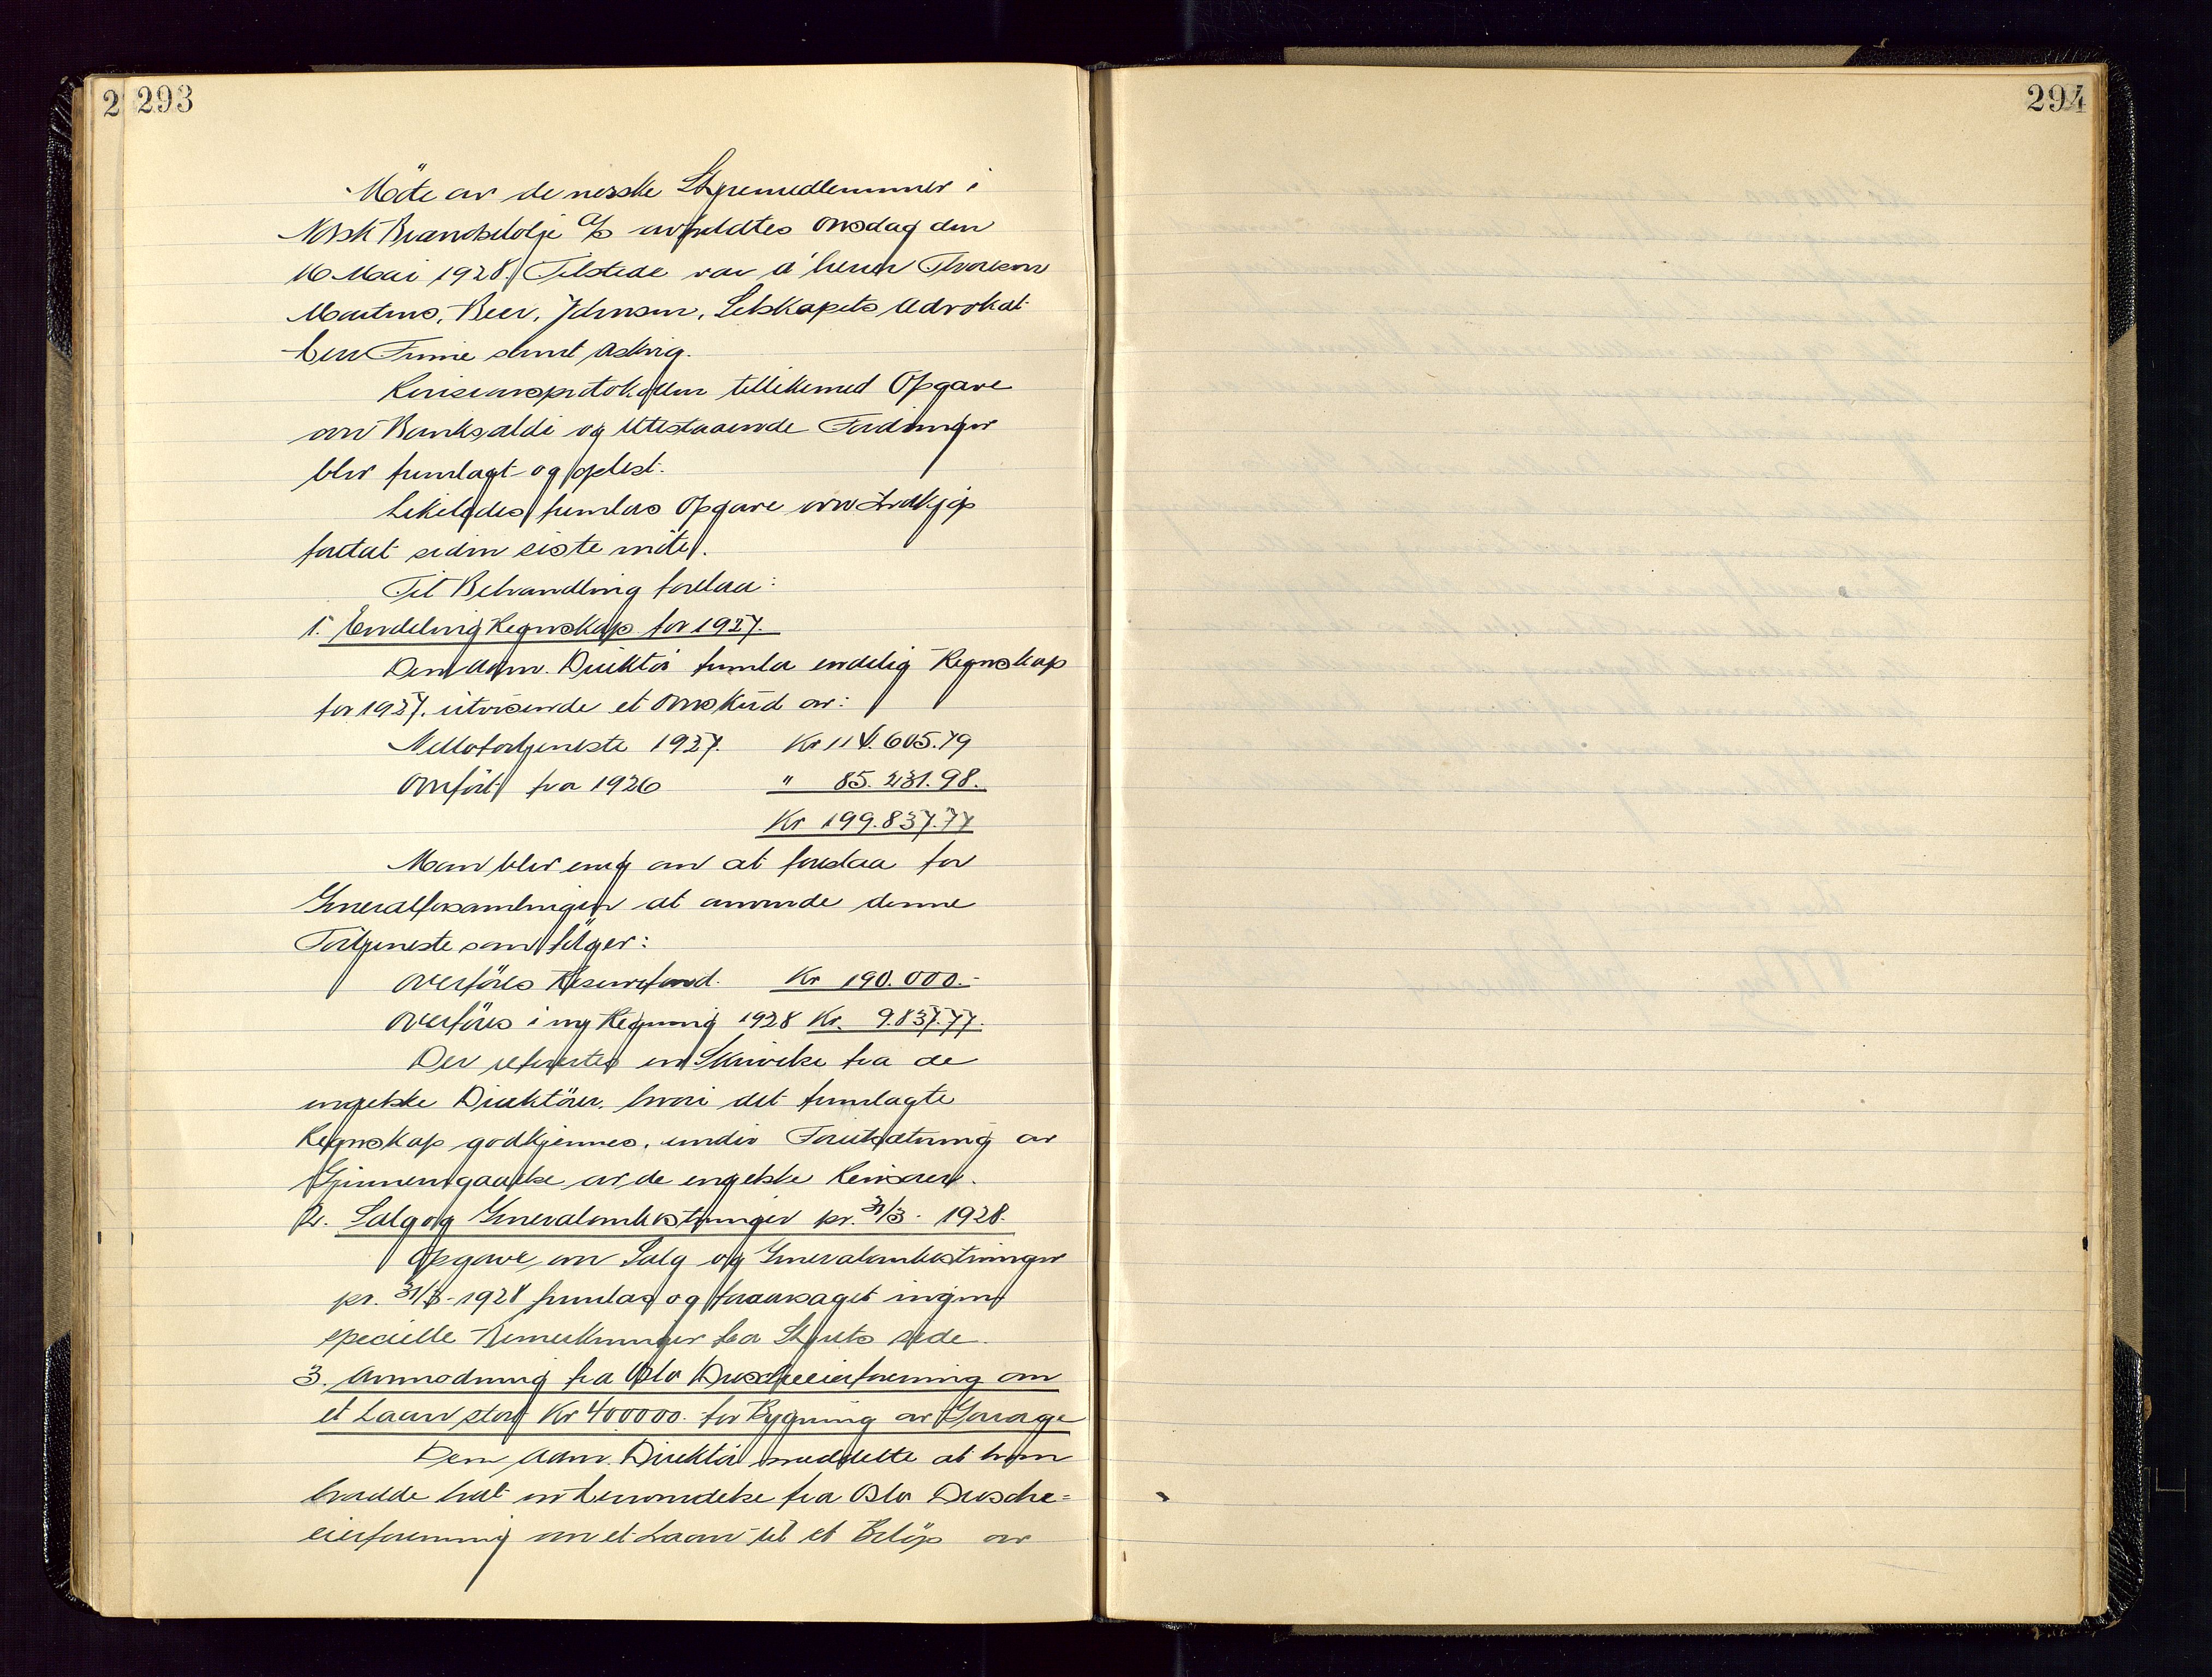 2 293
294
Möte av de norske Styremedlemmer i
Norsk Brændselolje A/S avholdtes Onsdag den
16 Mai 1928. Tilstede var d'herrer Thoresen
Martens, Beer, Johnson, Selskapets Advokat
herr Furu samt Askvig.
Revisionsprotokollen tillikemed Opgave
over Banksaldi og Utestaaende Fordringer
blev fremlagt og oplest.
Likeledes fremlas Opgave over Indkjøp
foretat siden siste möte.
Til Behandling forelaa:
1. Endelig Regnskap for 1927.
Den adm. Direktör fremla endelig Regnskap
for 1927. utvisende et Overskud av:
Nettofortjeneste 1927. Kr 114.605.79
Overfört fra 1926 " 85.231.98.
Kr 199.837.77
Man blev enig om at foreslaa for
Generalforsamlingen at anvende denne
Fortjeneste som fölger:
Overföres Reservefond. Kr 190.000.-
Overföres i ny Regning 1928 Kr. 9.837.77.
Der refertes en Skrivelse fra de
engelske Direktörer, hvori det fremlagte
Regnskap godkjennes, under Forutsætning av
Gjennemgaaelse av de engelske Revisorer.
2. Salg og Generalomkostninger pr. 31/3. 1928.
Opgave over Salg og Generalomkostninger
pr. 31/3-1928 fremlas og foraarsaget ingen
specielle Bemerkninger fra Styrets side.
3. Anmodning fra Oslo Droscheeierforening om
et Laan stort Kr 400000. for Bygning av Garage
Den adm. Direktör meddelte at han
hadde hat en henvendelse fra Oslo Drosche=
eierforening om et Laan til et Belöp av